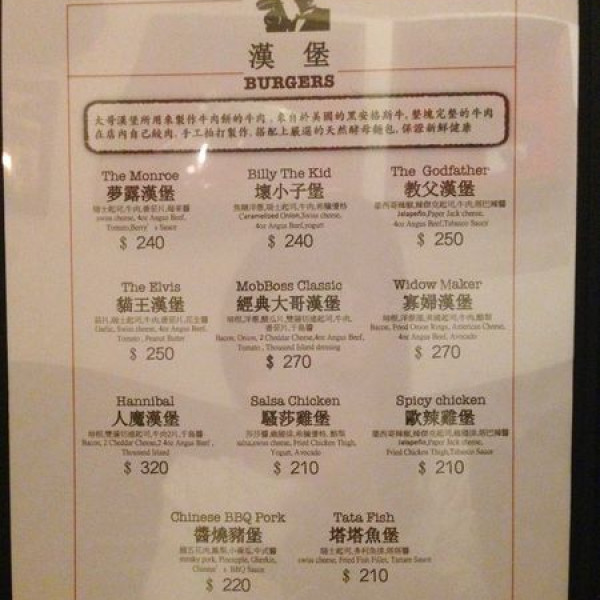 漢堡
BURGERS
大哥漢堡所用來製作牛肉餅的牛肉，來自於美國的黑安格斯牛，整塊完整的牛肉
在店內自己絞肉，手工拍打製作，搭配上嚴選的天然酵母麵包，保證新鮮健康
The Monroe
夢露漢堡
swiss cheese, 4oz Angus Beef,
Tomato, Berry's Sauce
$ 240
Billy The Kid
壞小子堡
Caramelized Onion, Swiss cheese,
4oz Angus Beef, yogurt
$ 240
The Godfather
教父漢堡
Jalapeño, Paper Jack cheese,
4oz Angus Beef, Tabasco Sauce
$ 250
The Elvis
貓王漢堡
Garlic, Swiss cheese, 4oz Angus Beef,
Tomato, Peanut Butter
$ 250
MobBoss Classic
經典大哥漢堡
Bacon, Onion, 2 Cheddar Cheese, 4oz Angus Beef,
Tomato, Thousand Island dressing
$ 270
Widow Maker
寡婦漢堡
Bacon, Fried Onion Rings, American Cheese,
4oz Angus Beef, Avocado
$ 270
Hannibal
人魔漢堡
Bacon, 2 Cheddar Cheese, 2 4oz Angus Beef,
Thousand Island
$ 320
Salsa Chicken
騷莎雞堡
salsa, swiss cheese, Fried Chicken Thigh,
Yogurt, Avocado
$ 210
Spicy chicken
歐辣雞堡
Jalapeño, Paper Jack cheese,
Fried Chicken Thigh, Tabasco Sauce
$ 210
Chinese BBQ Pork
醬燒豬堡
smoky pork, Pineapple, Gherkin,
Chinese's BBQ Sauce
$ 220
Tata Fish
塔塔魚堡
swiss cheese, Fried Fish Fillet, Tartare Sauce
$ 210